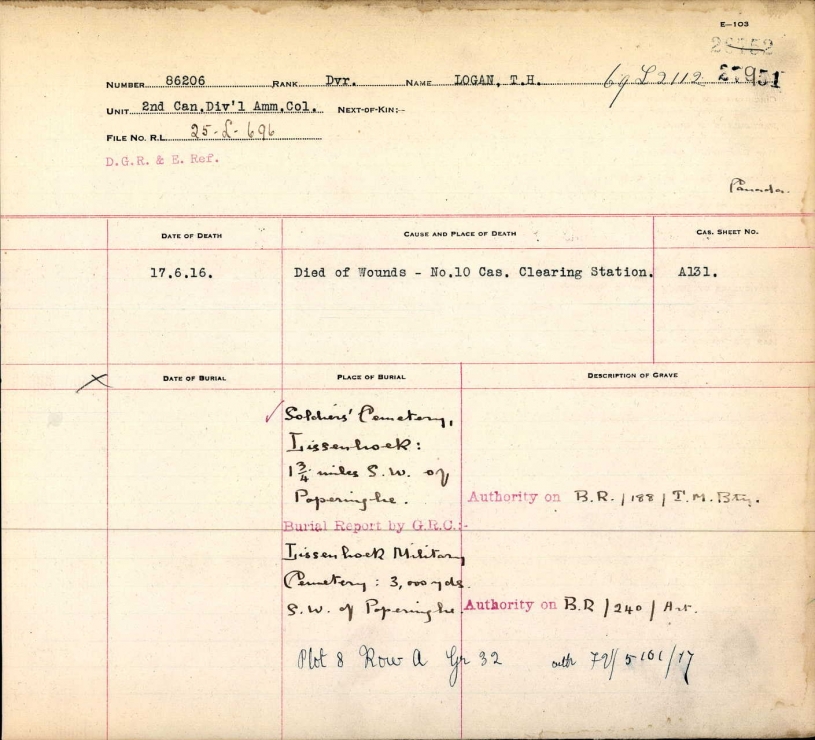 E—103
NUMBER 86206 RANK Dvr. NAME LOGAN, T.H. 649 L 2112 27951
UNIT 2nd Can.Div'l Amm.Col. NEXT-OF-KIN:-
FILE NO. R.L. 25-L-696
D.G.R. & E. Ref.
Canada.
DATE OF DEATH CAUSE AND PLACE OF DEATH CAS. SHEET NO.
17.6.16. Died of Wounds - No.10 Cas. Clearing Station. A131.
DATE OF BURIAL PLACE OF BURIAL DESCRIPTION OF GRAVE
Soldiers' Cemetery,
Lissenhoek:
1 3/4 miles S.W. of
Poperinghe. Authority on B.R. / 188 / T.M. Bty.
Burial Report by G.R.C.:-
Lissenhoek Military
Cemetery: 3,000 yds.
S.W. of Poperinghe. Authority on B.R / 240 / Art.
Plot 8 Row A Gr 32 auth 72/5161/17